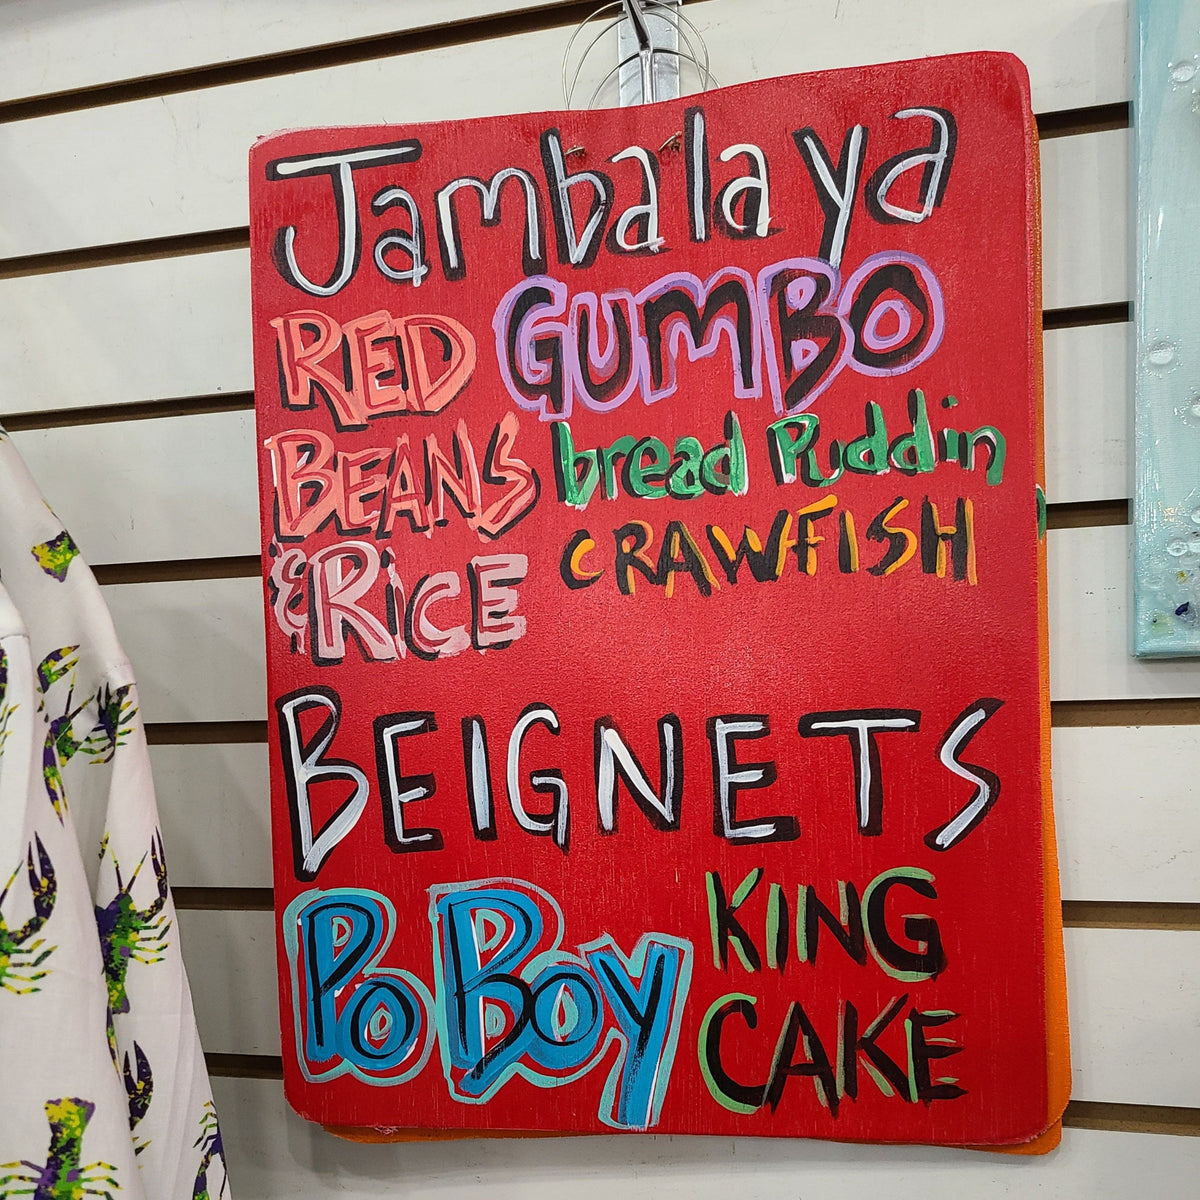 Jambalaya
GUMBO
RED
BEANS
& RiCE
bread Puddin
CRAWFISH
BEIGNETS
Po Boy
KING
CAKE